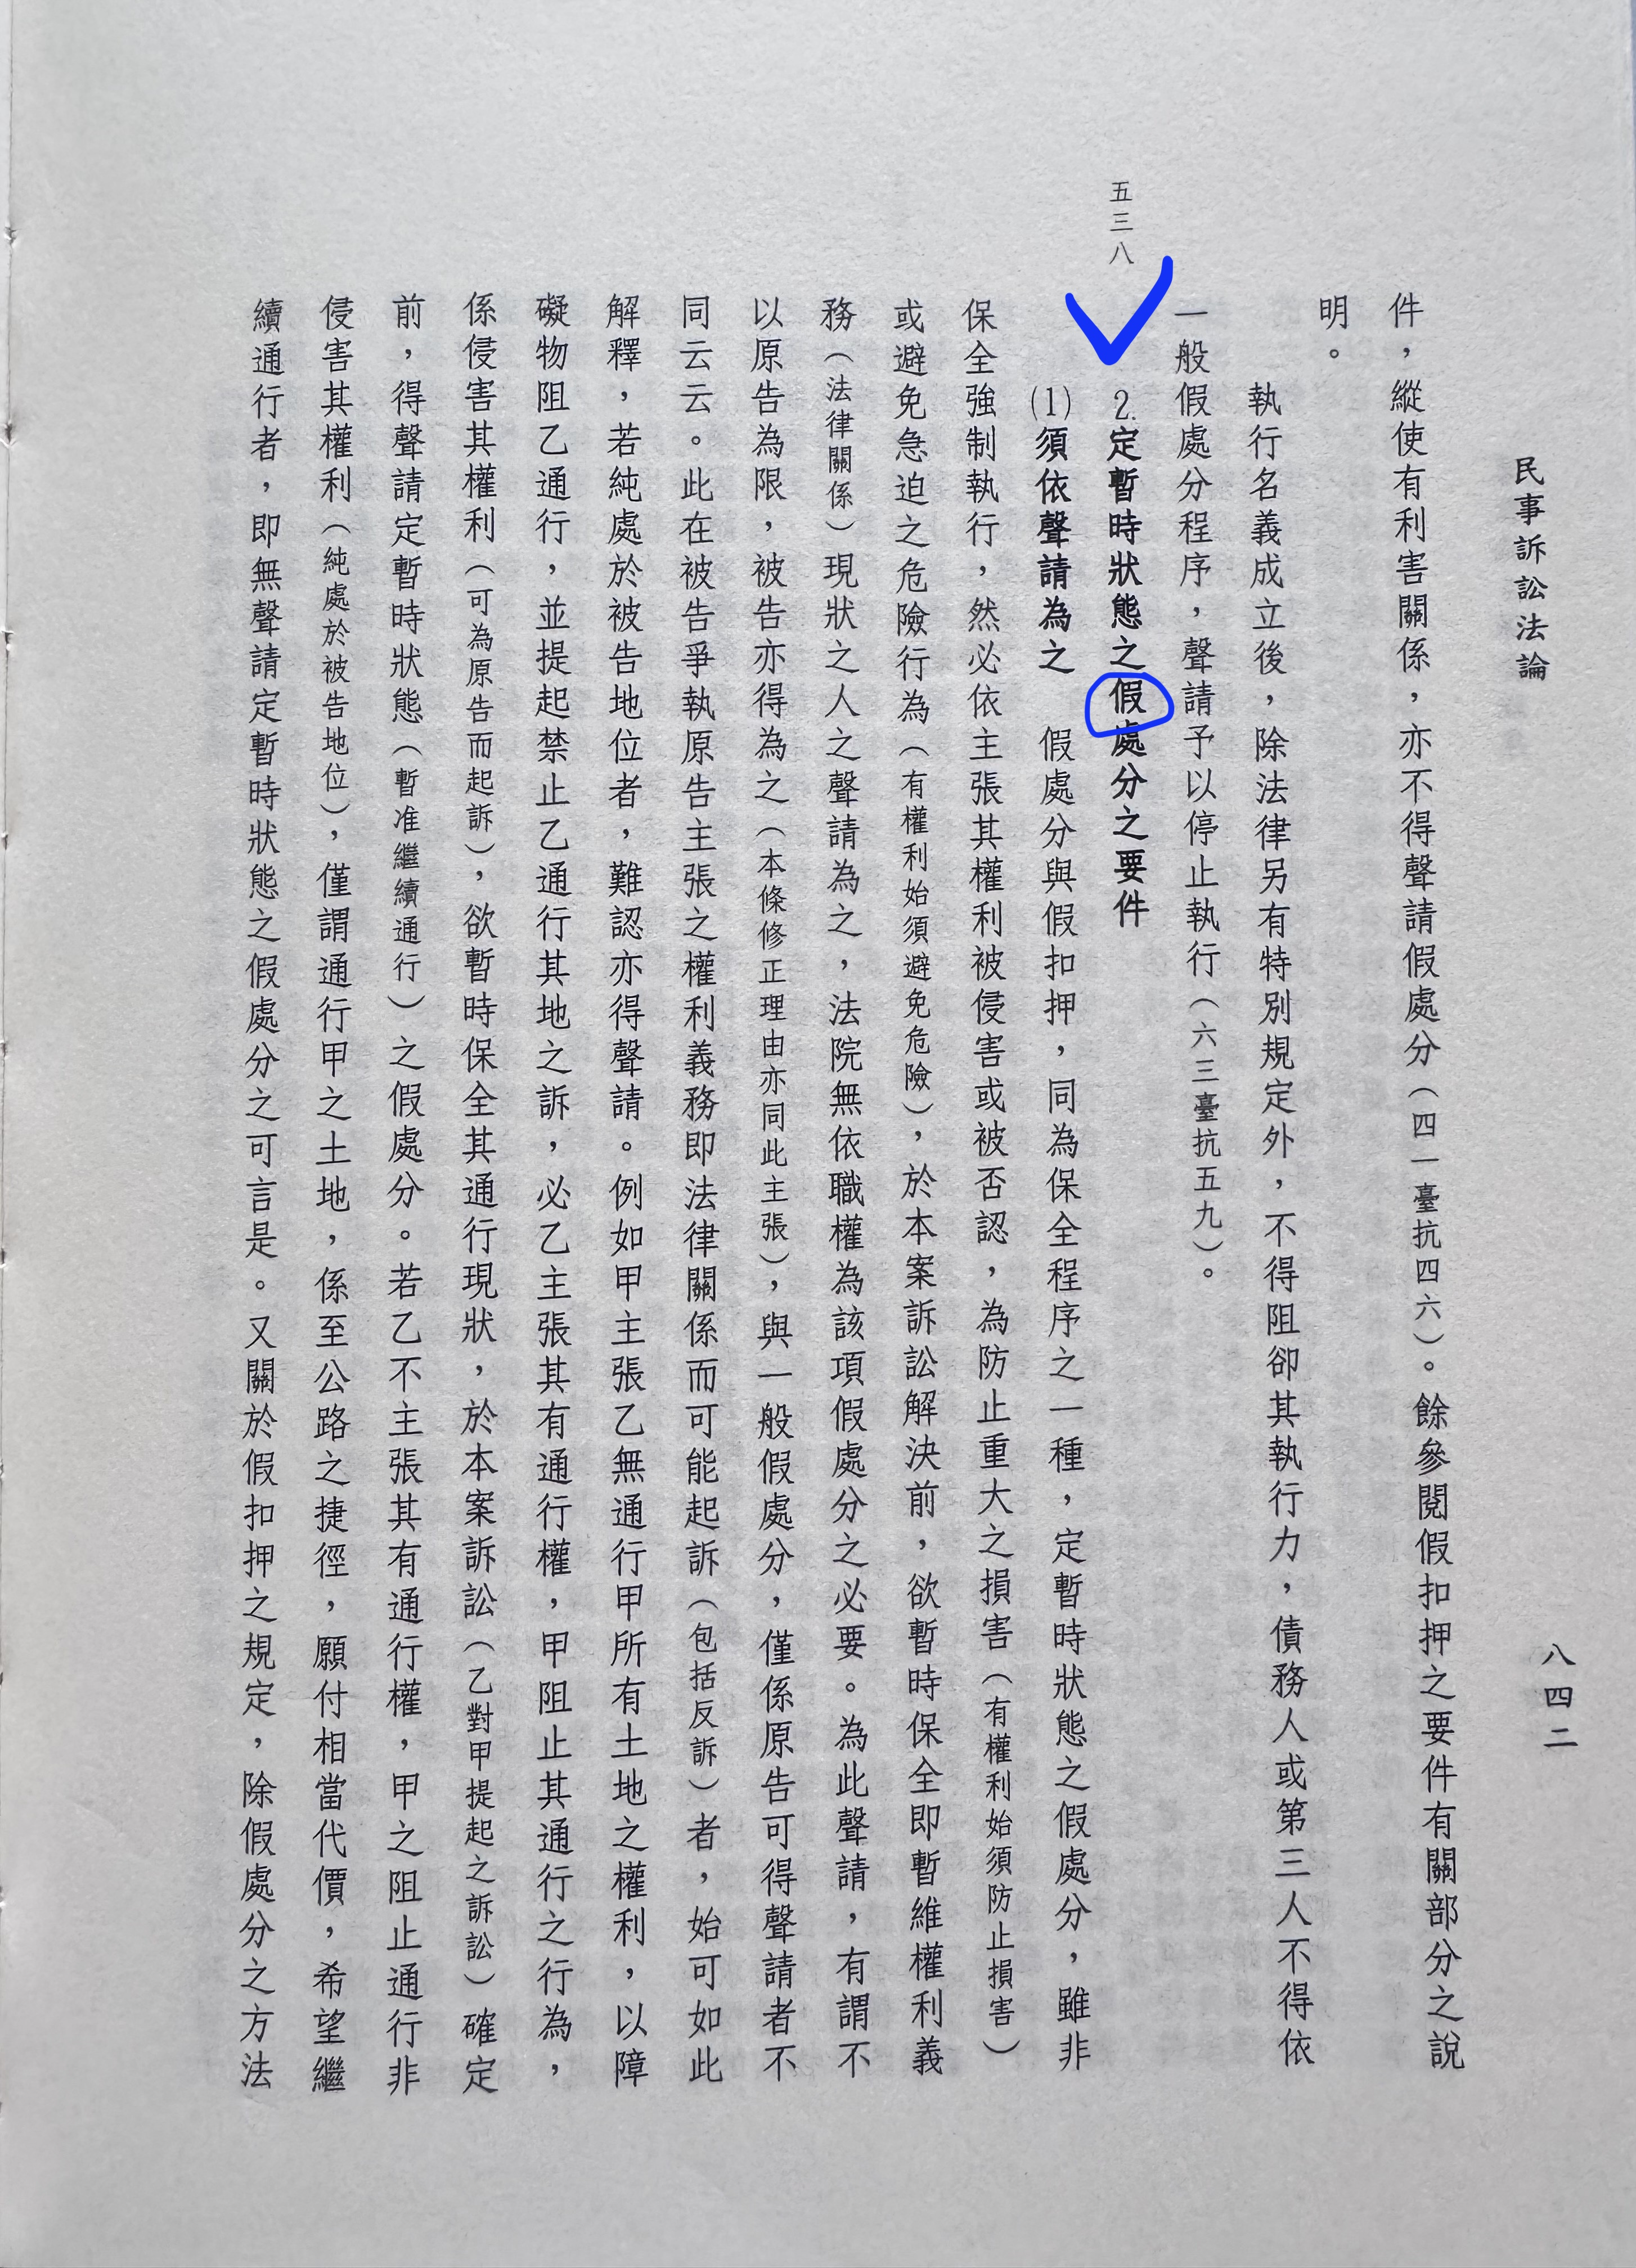 民事訴訟法論
八四二
件，縱使有利害關係，亦不得聲請假處分（四一臺抗四六）。餘參閱假扣押之要件有關部分之說
明。
執行名義成立後，除法律另有特別規定外，不得阻卻其執行力，債務人或第三人不得依
一般假處分程序，聲請予以停止執行（六三臺抗五九）。
五三八
2.定暫時狀態之假處分之要件
(1)須依聲請為之　假處分與假扣押，同為保全程序之一種，定暫時狀態之假處分，雖非
保全強制執行，然必依主張其權利被侵害或被否認，為防止重大之損害（有權利始須防止損害）
或避免急迫之危險行為（有權利始須避免危險），於本案訴訟解決前，欲暫時保全即暫維權利義
務（法律關係）現狀之人之聲請為之，法院無依職權為該項假處分之必要。為此聲請，有謂不
以原告為限，被告亦得為之（本條修正理由亦同此主張），與一般假處分，僅係原告可得聲請者不
同云云。此在被告爭執原告主張之權利義務即法律關係而可能起訴（包括反訴）者，始可如此
解釋，若純處於被告地位者，難認亦得聲請。例如甲主張乙無通行甲所有土地之權利，以障
礙物阻乙通行，並提起禁止乙通行其地之訴，必乙主張其有通行權，甲阻止其通行之行為，
係侵害其權利（可為原告而起訴），欲暫時保全其通行現狀，於本案訴訟（乙對甲提起之訴訟）確定
前，得聲請定暫時狀態（暫准繼續通行）之假處分。若乙不主張其有通行權，甲之阻止通行非
侵害其權利（純處於被告地位），僅謂通行甲之土地，係至公路之捷徑，願付相當代價，希望繼
續通行者，即無聲請定暫時狀態之假處分之可言是。又關於假扣押之規定，除假處分之方法